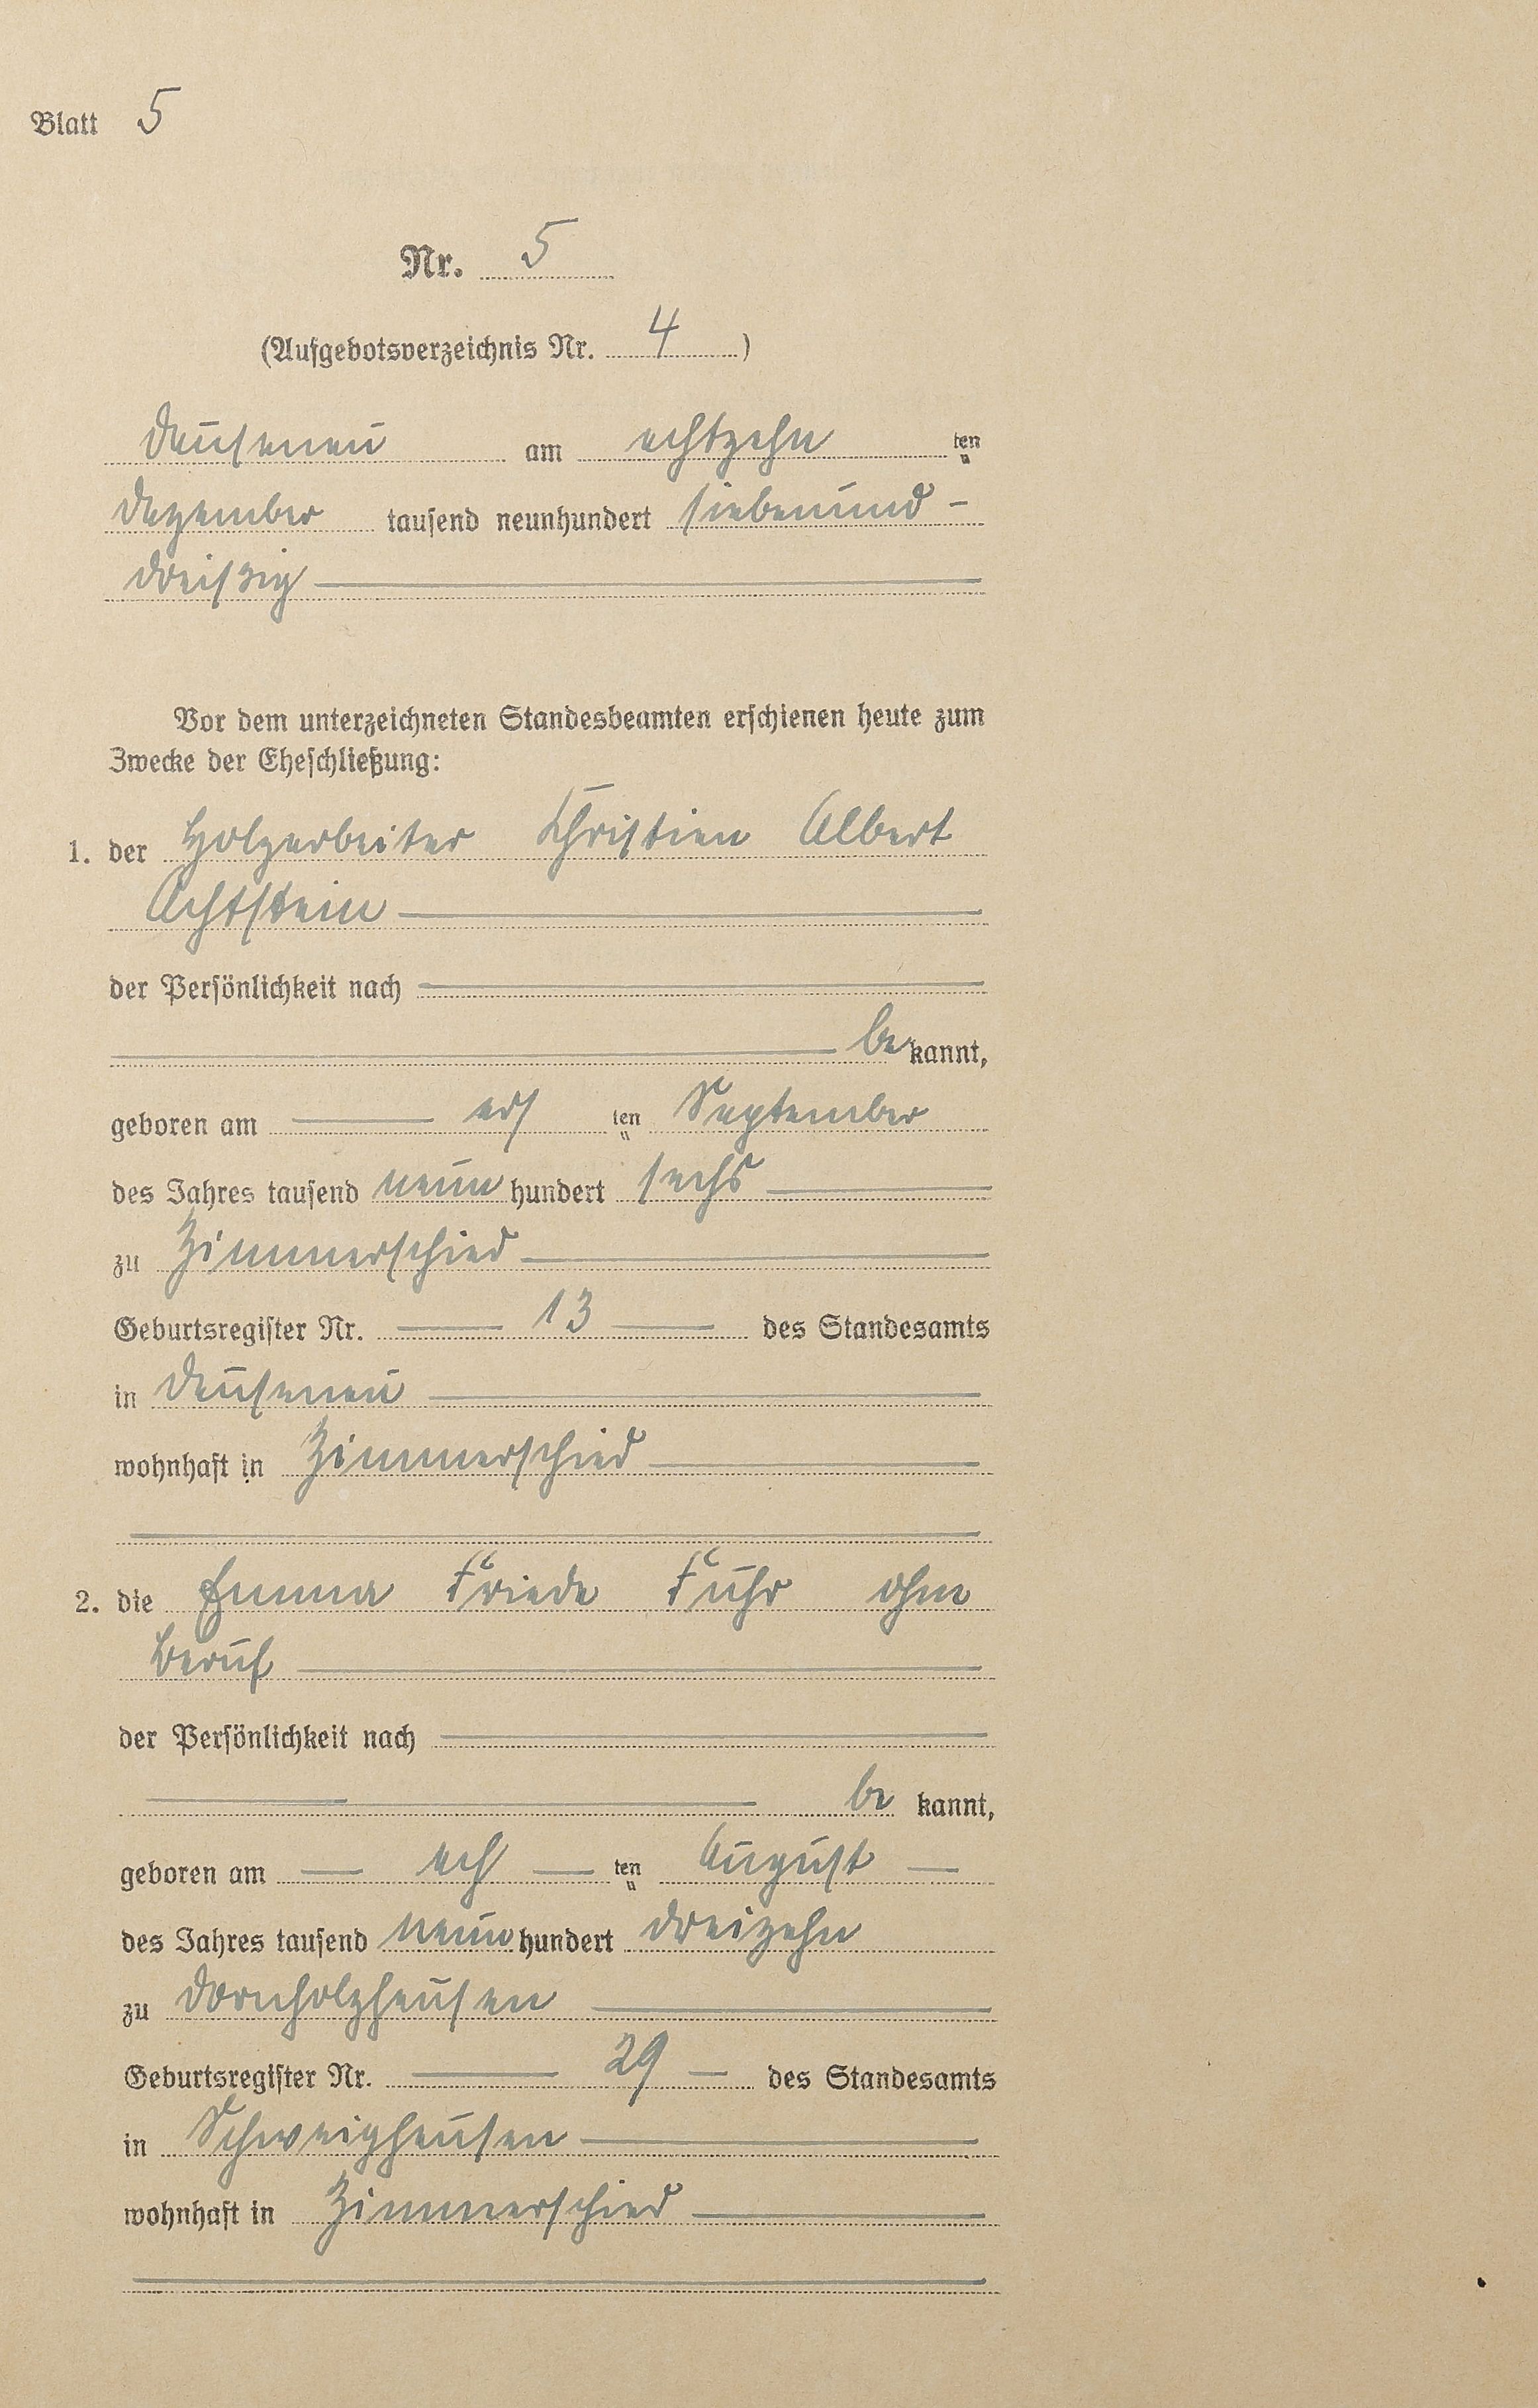 Blatt 5
Nr. 5
(Aufgebotsverzeichnis Nr. 4)
Dausenau am achtzehn ten
Dezember tausend neunhundert siebenund-
dreiszig
Vor dem unterzeichneten Standesbeamten erschienen heute zum
Zwecke der Eheschließung:
1. der Holzarbeiter Christian Albert
Achtstein
der Persönlichkeit nach
be kannt,
geboren am ers ten September
des Jahres tausend neun hundert sechs
zu Zimmerschied
Geburtsregister Nr. 13 des Standesamts
in Dausenau
wohnhaft in Zimmerschied
2. die Emma Frieda Fuhr ohne
Beruf
der Persönlichkeit nach
be kannt,
geboren am ach ten August
des Jahres tausend neun hundert dreizehn
zu Dornholzhausen
Geburtsregister Nr. 29 des Standesamts
in Schweighausen
wohnhaft in Zimmerschied